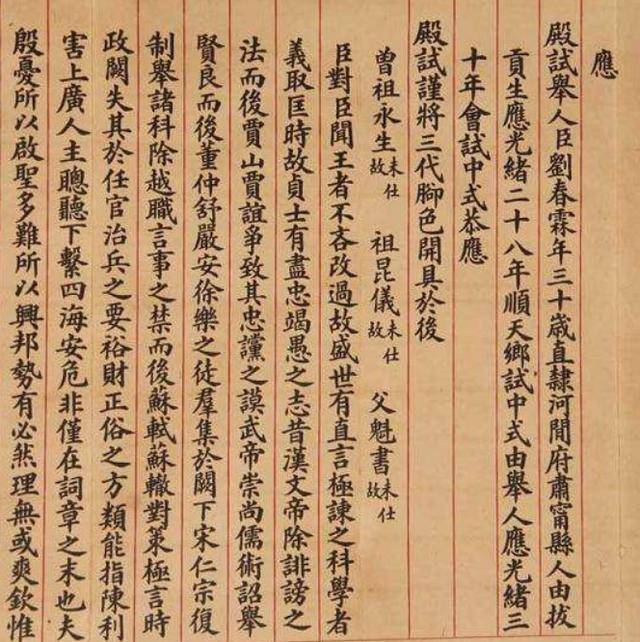 應
殿試舉人臣劉春霖年三十歲直隸河間府肅甯縣人由拔
貢生應光緒二十八年順天鄉試中式由舉人應光緒三
十年會試中式恭應
殿試謹將三代腳色開具於後
曾祖永生未仕故 祖昆儀未仕故 父魁書未仕故
臣對臣聞王者不吝改過故盛世有直言極諫之科學者
義取匡時故貞士有盡忠竭愚之志昔漢文帝除誹謗之
法而後賈山賈誼爭致其忠讜之謨武帝崇尚儒術詔舉
賢良而後董仲舒嚴安徐樂之徒羣集於闕下宋仁宗復
制舉諸科除越職言事之禁而後蘇軾蘇轍對策極言時
政闕失其於任官治兵之要裕財正俗之方類能指陳利
害上廣人主聰聽下繫四海安危非僅在詞章之末也夫
殷憂所以啟聖多難所以興邦勢有必然理無或爽欽惟